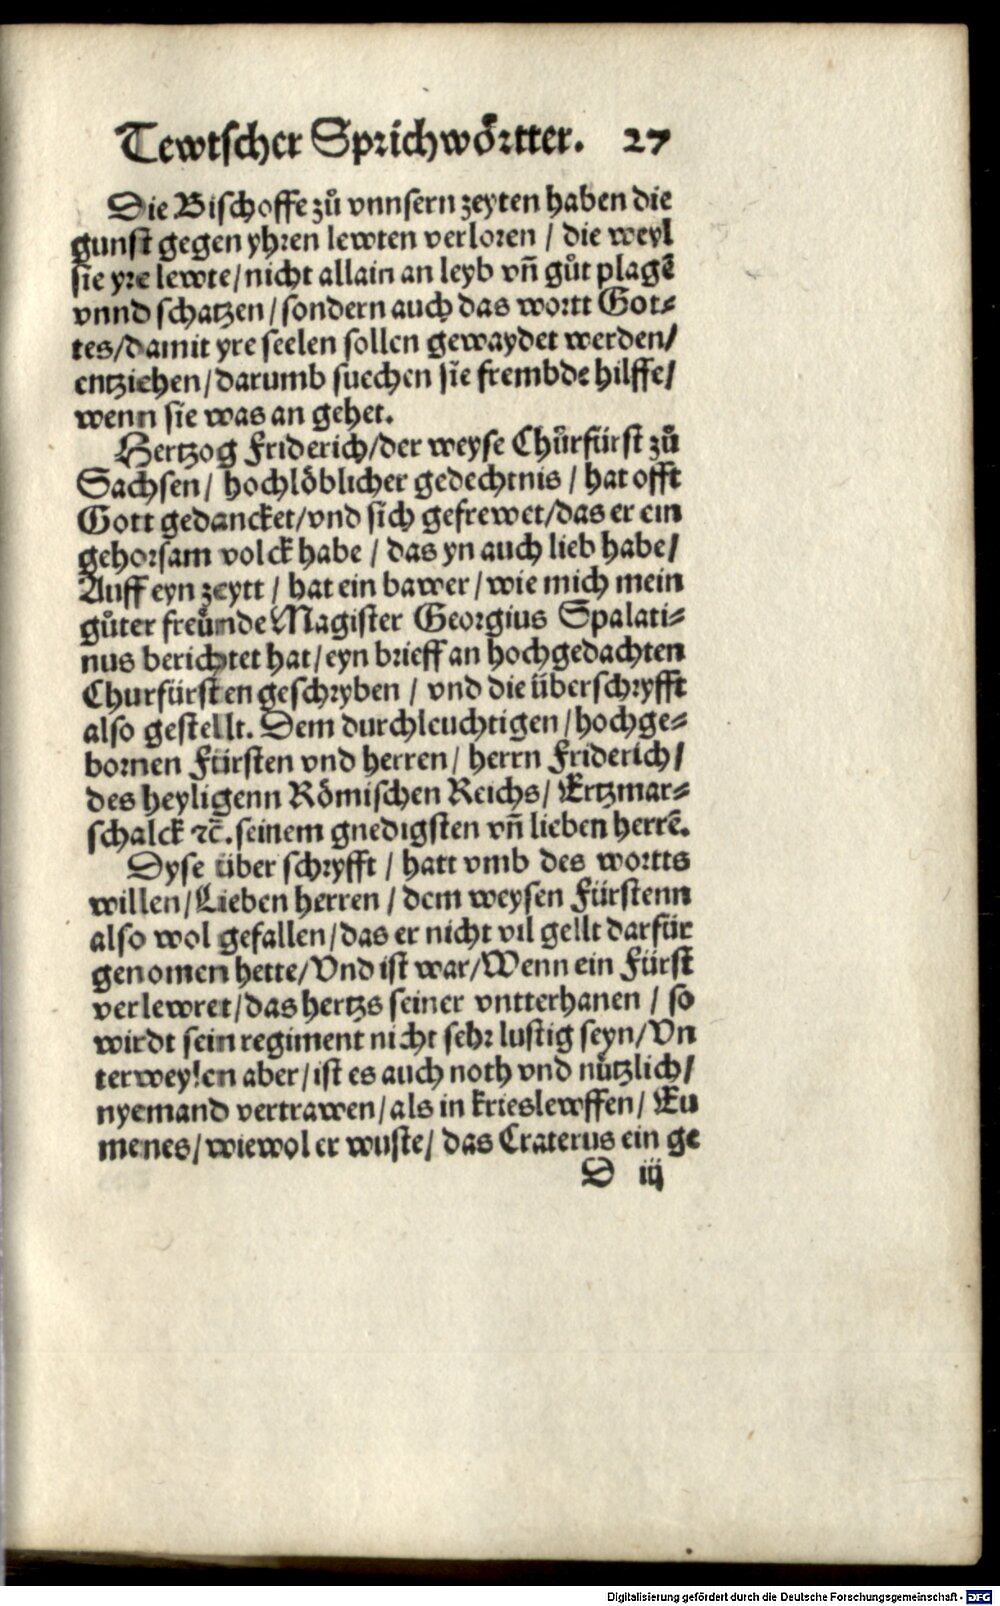 Tewtscher Sprichwoͤrtter. 27
Die Bischoffe zuͦ vnnsern zeyten haben die
gunst gegen yhren lewten verloren / die weyl
sie yre lewte / nicht allain an leyb vñ guͦt plagẽ
vnnd schatzen / sondern auch das wortt Got⸗
tes / damit yre seelen sollen gewaydet werden /
entziehen / darumb suechen sie frembde hilffe /
wenn sie was an gehet.
Hertzog Friderich / der weyse Chuͦrfürst zuͦ
Sachsen / hochloͤblicher gedechtnis / hat offt
Gott gedancket / vnd sich gefrewet / das er ein
gehorsam volck habe / das yn auch lieb habe /
Auff eyn zeytt / hat ein bawer / wie mich mein
guͦter freuͦnde Magister Georgius Spalati⸗
nus berichtet hat / eyn brieff an hochgedachten
Churfürsten geschryben / vnd die überschryfft
also gestellt. Dem durchleuchtigen / hochge⸗
bornen Fürsten vnd herren / herrn Friderich /
des heyligenn Roͤmischen Reichs / Ertzmar⸗
schalck ꝛc̃. seinem gnedigsten vñ lieben herrẽ.
Dyse über schryfft / hatt vmb des wortts
willen / Lieben herren / dem weysen Fürstenn
also wol gefallen / das er nicht vil gellt darfür
genomen hette / Vnd ist war / Wenn ein Fürst
verlewret / das hertzs seiner vntterhanen / so
wirdt sein regiment nicht sehr lustig seyn / Vn
terweylen aber / ist es auch noth vnd nützlich /
nyemand vertrawen / als in krieslewffen / Eu
menes / wiewol er wuste / das Craterus ein ge
D iij
Digitalisierung gefördert durch die Deutsche Forschungsgemeinschaft - DFG